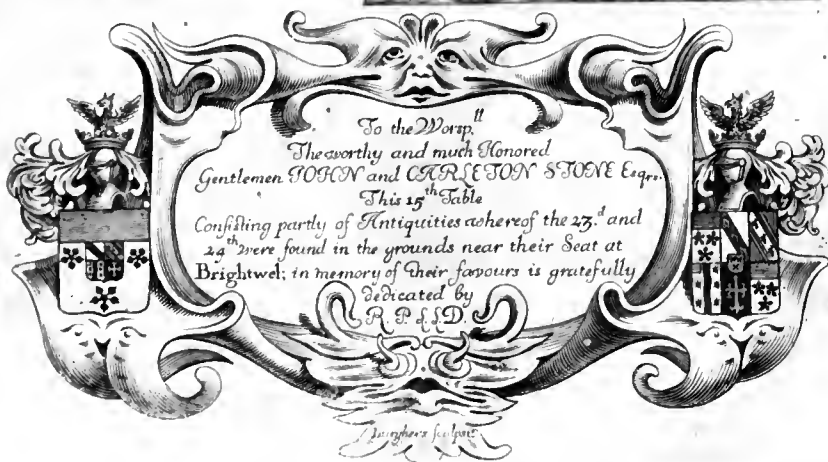 To the Worsp.ll
The worthy and much Honored
Gentlemen JOHN and CARLETON STONE Esqrs.
This 15th Table
Consisting partly of Antiquities whereof the 23.d and
24th were found in the grounds near their Seat at
Brightwel; in memory of their favours is gratefully
dedicated by
R. P. LLD.
sculpsit